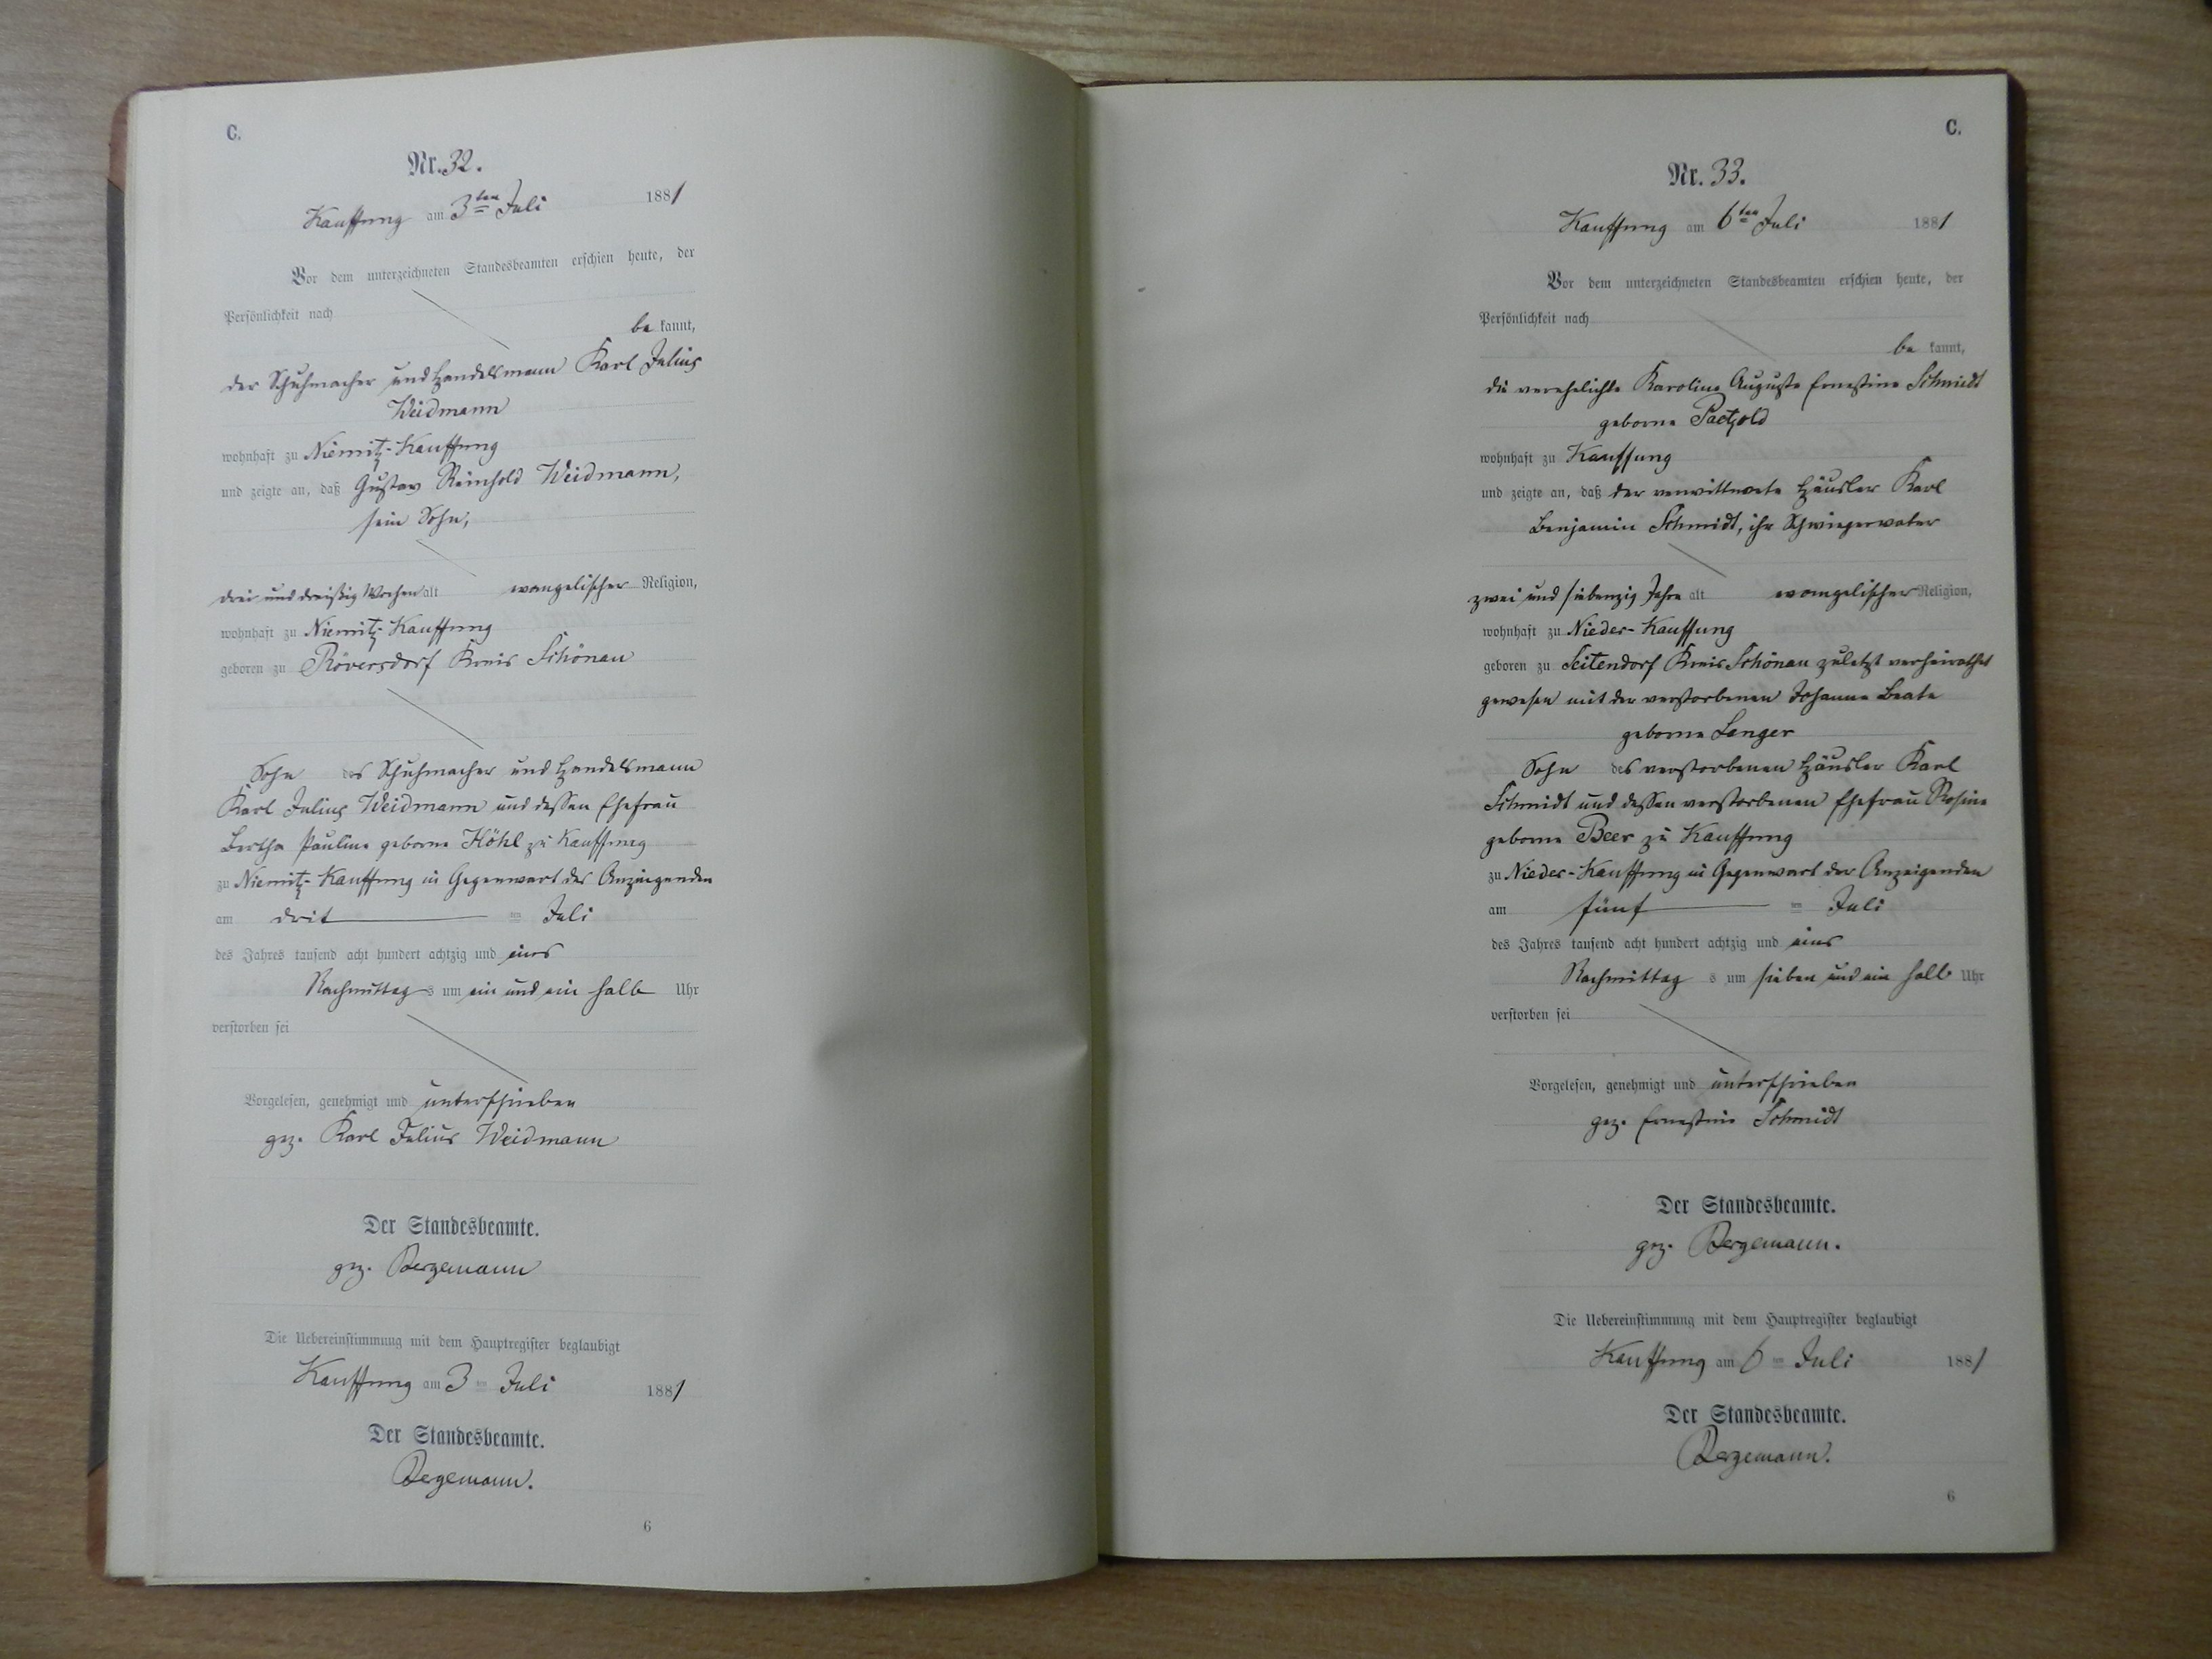 C.
Nr. 32.
Kauffung am 3ten Juli 1881
Vor dem unterzeichneten Standesbeamten erschien heute, der
Persönlichkeit nach
be kannt,
der Schuhmacher und Handelsmann Karl Julius
Weidmann
wohnhaft zu Niemitz-Kauffung
und zeigte an, daß Gustav Reinhold Weidmann,
sein Sohn,
drei und dreißig Wochen alt evangelischer Religion,
wohnhaft zu Niemitz-Kauffung
geboren zu Röversdorf Kreis Schönau
Sohn des Schuhmacher und Handelsmann
Karl Julius Weidmann und dessen Ehefrau
Bertha Pauline geborne Höhl zu Kauffung
zu Niemitz-Kauffung in Gegenwart des Anzeigenden
am drit ten Juli
des Jahres tausend acht hundert achtzig und eins
Nachmittag s um ein und ein halb Uhr
verstorben sei
Vorgelesen, genehmigt und unterschrieben
gez. Karl Julius Weidmann
Der Standesbeamte.
gez. Bergemann
Die Uebereinstimmung mit dem Hauptregister beglaubigt
Kauffung am 3 ten Juli 1881
Der Standesbeamte.
Bergemann.
6
C.
Nr. 33.
Kauffung am 6ten Juli 1881
Vor dem unterzeichneten Standesbeamten erschien heute, der
Persönlichkeit nach
be kannt,
die verehelichte Karoline Auguste Ernestine Schmidt
geborne Paetzold
wohnhaft zu Kauffung
und zeigte an, daß der verwittwete Häusler Karl
Benjamin Schmidt, ihr Schwiegervater
zwei und siebenzig Jahre alt evangelischer Religion,
wohnhaft zu Nieder-Kauffung
geboren zu Seitendorf Kreis Schönau zuletzt verheirathet
gewesen mit der verstorbenen Johanne Beate
geborne Langer
Sohn des verstorbenen Häusler Karl
Schmidt und dessen verstorbenen Ehefrau Rosine
geborne Beer zu Kauffung
zu Nieder-Kauffung in Gegenwart der Anzeigenden
am fünf ten Juli
des Jahres tausend acht hundert achtzig und eins
Nachmittag s um sieben und ein halb Uhr
verstorben sei
Vorgelesen, genehmigt und unterschrieben
gez. Ernestine Schmidt
Der Standesbeamte.
gez. Bergemann.
Die Uebereinstimmung mit dem Hauptregister beglaubigt
Kauffung am 6 ten Juli 1881
Der Standesbeamte.
Bergemann.
6